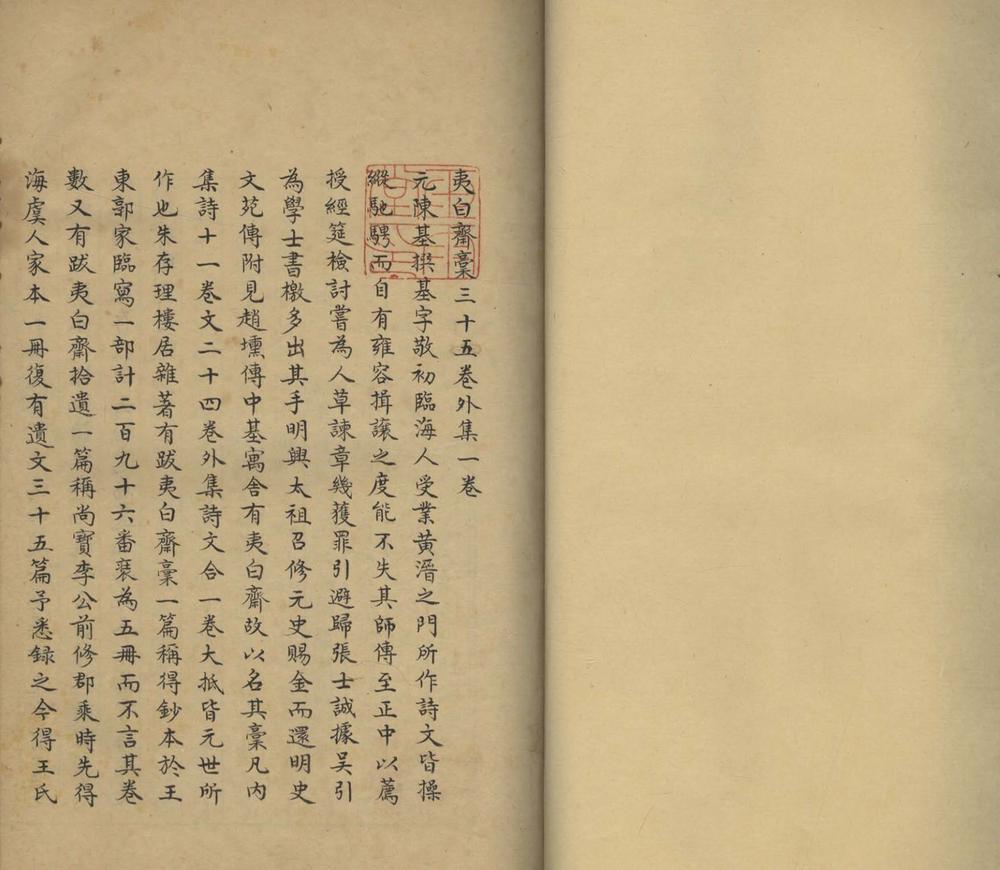 夷白齋稾三十五卷外集一卷
元陳基撰基字敬初臨海人受業黃溍之門所作詩文皆操
縱馳騁而自有雍容揖讓之度能不失其師傳至正中以薦
授經筵檢討嘗為人草諫章幾獲罪引避歸張士誠據吳引
為學士書檄多出其手明興太祖召修元史賜金而還明史
文苑傳附見趙壎傳中基寓舍有夷白齋故以名其稾凡內
集詩十一卷文二十四卷外集詩文合一卷大抵皆元世所
作也朱存理樓居雜著有跋夷白齋稾一篇稱得鈔本於王
東郭家臨寫一部計二百九十六番裒為五冊而不言其卷
數又有跋夷白齋拾遺一篇稱尚寶李公前修郡乘時先得
海虞人家本一冊復有遺文三十五篇予悉録之今得王氏